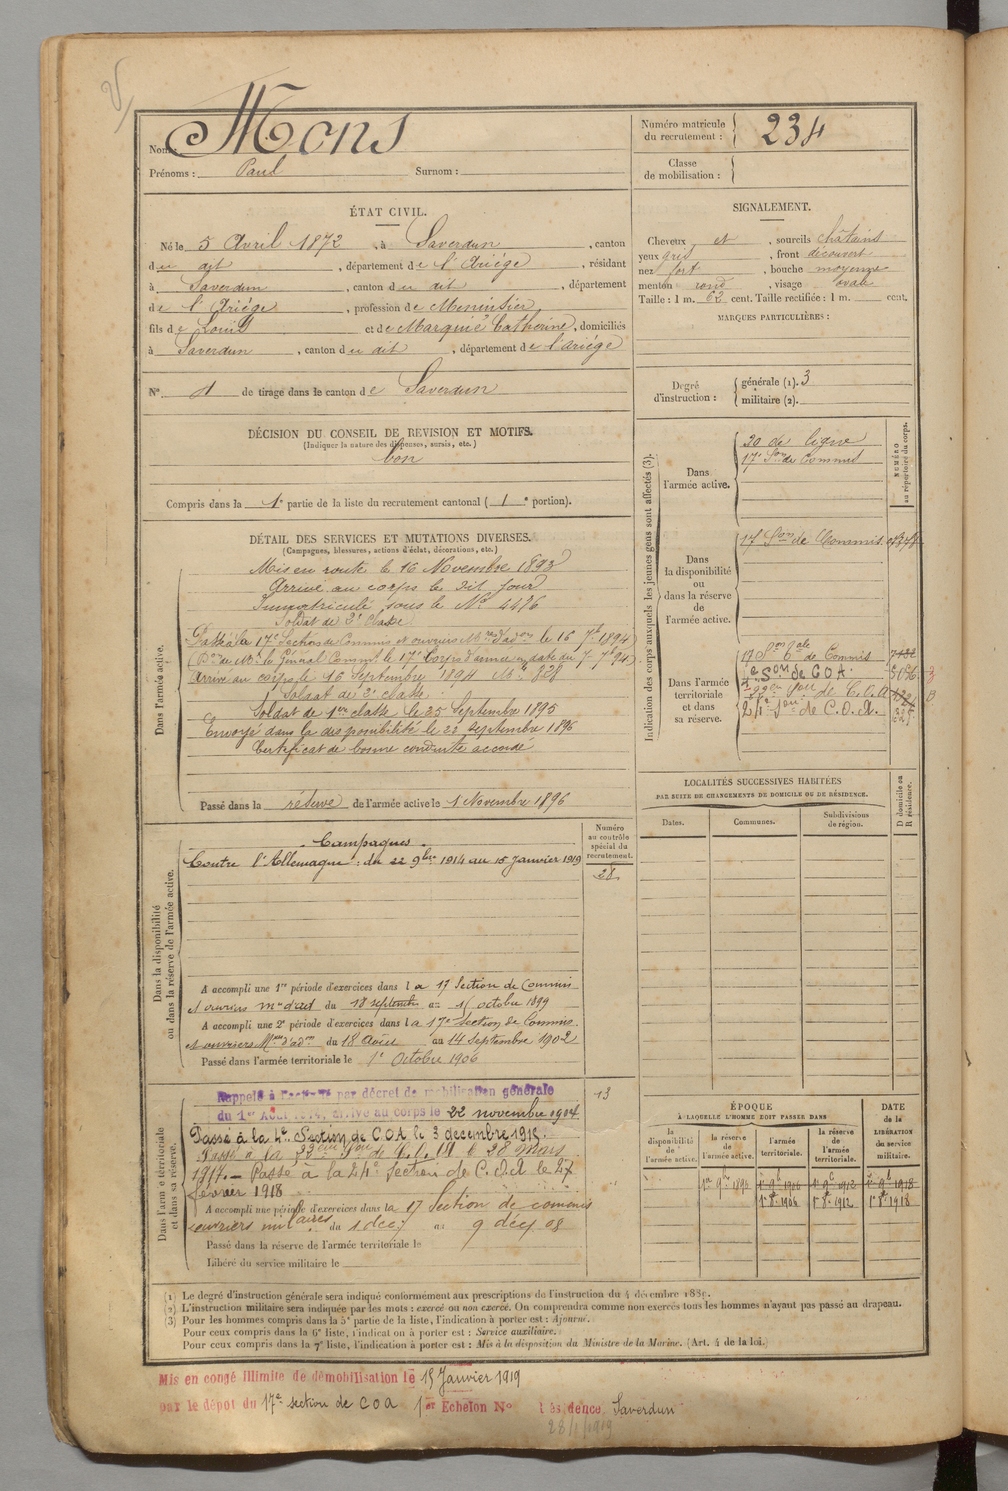 Nom: Mons
Prénoms: Paul Surnom:
Numéro matricule du recrutement: 234
Classe de mobilisation:
ÉTAT CIVIL.
Né le 5 Avril 1872, à Saverdun, canton
du dit, département de l'Ariège, résidant
à Saverdun, canton du dit, département
de l'Ariège, profession de Menuisier
fils de Louis et de Marquié Catherine, domiciliés
à Saverdun, canton du dit, département de l'Ariège
N° 1 de tirage dans le canton de Saverdun
DÉCISION DU CONSEIL DE REVISION ET MOTIFS.
(Indiquer la nature des dispenses, sursis, etc.)
bon
Compris dans la 1e partie de la liste du recrutement cantonal (1e portion).
SIGNALEMENT.
Cheveux et, sourcils châtains
yeux gris, front découvert
nez fort, bouche moyenne
menton rond, visage ovale
Taille: 1 m. 62 cent. Taille rectifiée: 1 m. cent.
MARQUES PARTICULIÈRES:
Degré d'instruction:
générale (1). 3
militaire (2).
Indication des corps auxquels les jeunes gens sont affectés (3).
NUMÉRO au répertoire du corps.
Dans l'armée active.
20 de ligne
17e Son de Commis
Dans la disponibilité ou dans la réserve de l'armée active.
17 Son de Commis
Dans l'armée territoriale et dans sa réserve.
17 Son tale de Commis
4e Son de COA
22eme Son de C.O.A
24e Son de C.O.A.
DÉTAIL DES SERVICES ET MUTATIONS DIVERSES.
(Campagnes, blessures, actions d'éclat, décorations, etc.)
Dans l'armée active.
Mis en route le 16 Novembre 1893
Arrivé au corps le dit jour
Immatriculé sous le No 4476
Soldat de 2e classe
Passé à la 17e Section de Commis et ouvriers Mres d'adon le 16 7bre 1894
(Don de Mr le Général Commt le 17e Corps d'armée en date du 7 7bre 94)
Arrivé au corps le 16 Septembre 1894 No 828
Soldat de 2e classe
Soldat de 1ère classe le 25 Septembre 1895
Envoyé dans la disponibilité le 22 Septembre 1896
Certificat de bonne conduite accordé
Passé dans la réserve de l'armée active le 1 Novembre 1896
Dans la disponibilité ou dans la réserve de l'armée active.
Numéro au contrôle spécial du recrutement.
28
Campagnes
Contre l'Allemagne: du 22 9bre 1914 au 15 Janvier 1919
A accompli une 1re période d'exercices dans la 17 Section de Commis
et ouvriers mres d'ad du 18 septembre au 15 octobre 1899
A accompli une 2e période d'exercices dans la 17e Section de Commis
et ouvriers Mres d'adon du 18 Août au 14 Septembre 1902
Passé dans l'armée territoriale le 1e Octobre 1906
LOCALITÉS SUCCESSIVES HABITÉES
PAR SUITE DE CHANGEMENTS DE DOMICILE OU DE RÉSIDENCE.
Dates. Communes. Subdivisions de région. D domicile ou R résidence.
Dans l'armée territoriale et dans sa réserve.
13
Rappelé à l'activité par décret de mobilisation générale
du 1er Août 1914, arrivé au corps le 22 novembre 1914
Passé à la 4e Section de COA le 3 decembre 1915.
Passé à la 22eme Son de C.O.A le 28 mars
1917. - Passé à la 24e Section de C.O.A le 27
février 1918
A accompli une période d'exercices dans la 17 Section de commis
ouvriers militaires du 1 dec au 9 déc 08
Passé dans la réserve de l'armée territoriale le
Libéré du service militaire le
ÉPOQUE
À LAQUELLE L'HOMME DOIT PASSER DANS
la disponibilité de l'armée active. la réserve de l'armée active. l'armée territoriale. la réserve de l'armée territoriale.
DATE de la LIBÉRATION du service militaire.
1er 9bre 1896 1er 9bre 1906 1er 9bre 1912 1er 9bre 1918
1er 8bre 1906 1er 8bre 1912 1er 8bre 1918
(1) Le degré d'instruction générale sera indiqué conformément aux prescriptions de l'instruction du 4 décembre 1889.
(2) L'instruction militaire sera indiquée par les mots: exercé ou non exercé. On comprendra comme non exercés tous les hommes n'ayant pas passé au drapeau.
(3) Pour les hommes compris dans la 5e partie de la liste, l'indication à porter est: Ajourné.
Pour ceux compris dans la 6e liste, l'indication à porter est: Service auxiliaire.
Pour ceux compris dans la 7e liste, l'indication à porter est: Mis à la disposition du Ministre de la Marine. (Art. 4 de la loi.)
Mis en congé illimité de démobilisation le 15 Janvier 1919
par le dépôt du 17e section de COA 1er Echelon No Résidence, Saverdun
28/1/1919